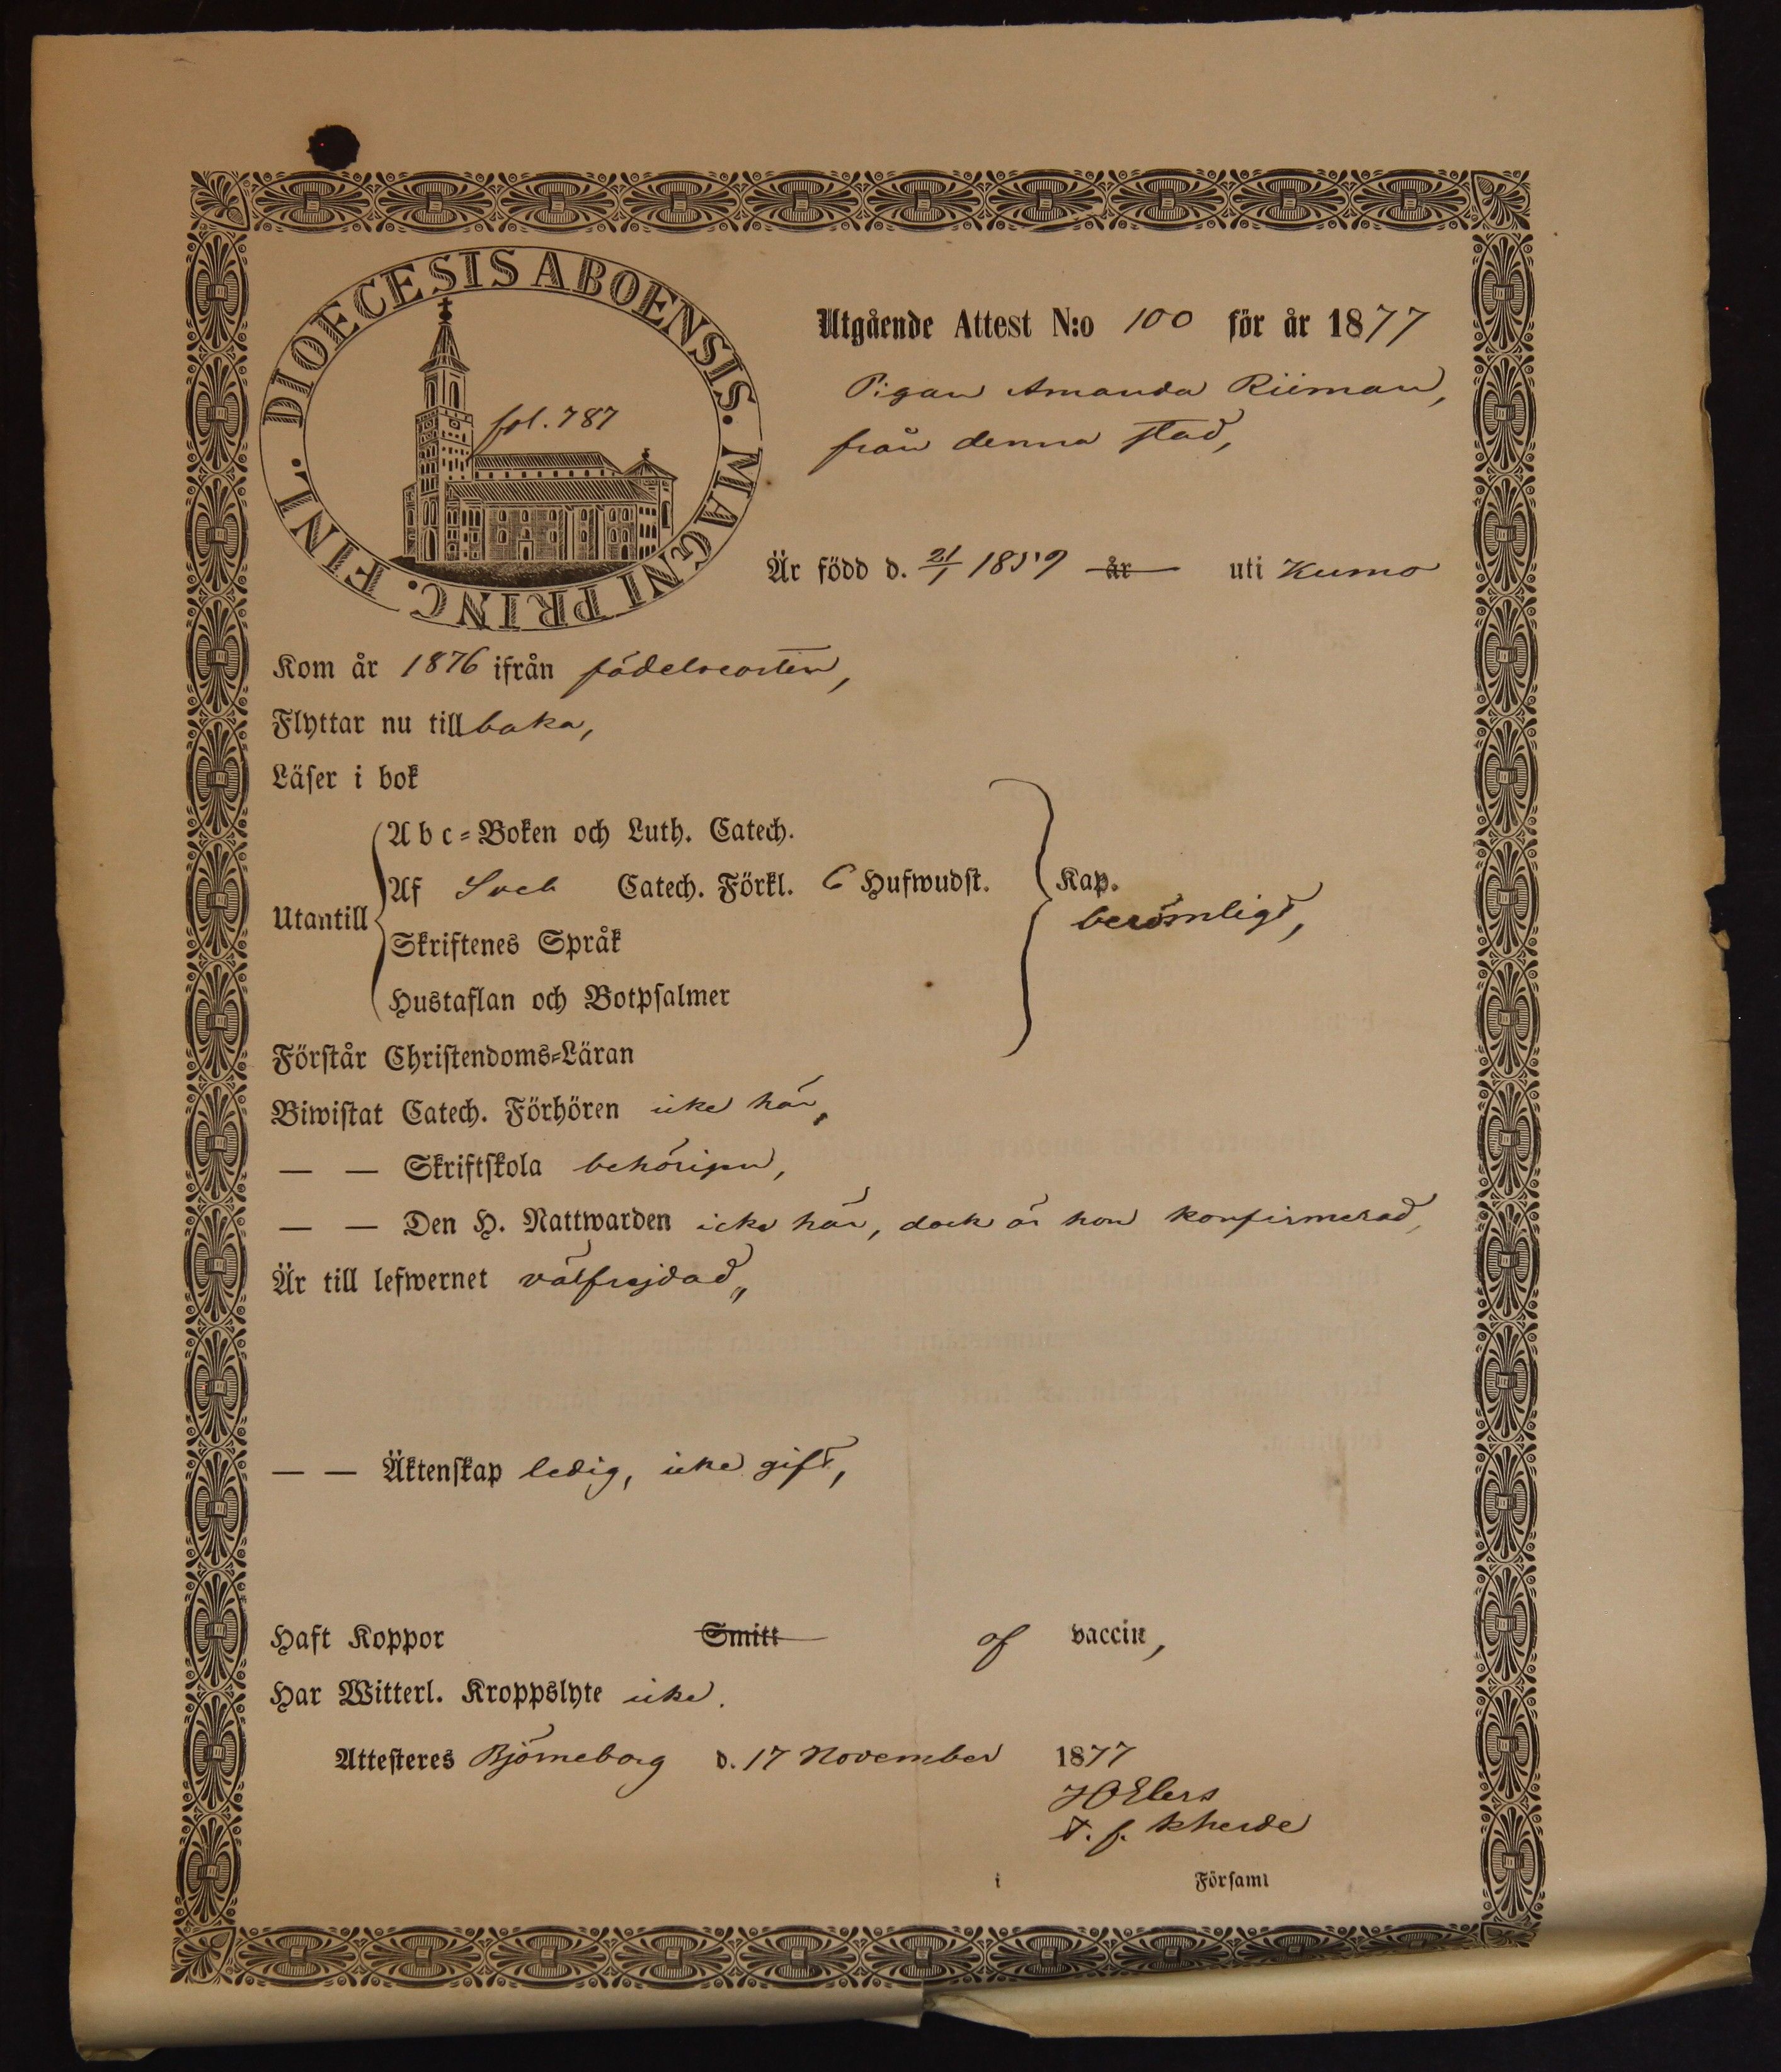 DIOECESIS ABOENSIS. MAGNI PRINC. FINL.
fol. 787
Utgående Attest N:o 100 för år 1877
Pigan Amanda Riiman,
från denna stad,
Är född d. 21/1 1859 år uti Kumo
Kom år 1876 ifrån födelseorten,
Flyttar nu tillbaka,
Läser i bok
Abc-Boken och Luth. Catech.
Af Sveb Catech. Förkl. 6 Hufwudst. Kap.
Utantill
berömligt,
Skriftenes Språk
Hustaflan och Botpsalmer
Förstår Christendoms-Läran
Biwistat Catech. Förhören icke här,
— — Skriftskola behörigen,
— — Den H. Nattwarden icke här, dock är hon konfirmerad,
Är till lefwernet välfrejdad,,
— — Äktenskap ledig, icke gift,
Haft Koppor Smitt af vaccin,
Har Witterl. Kroppslyte icke.
Attesteres Björneborg d. 17 November 1877
Elers
t. f. kherde
i Församl